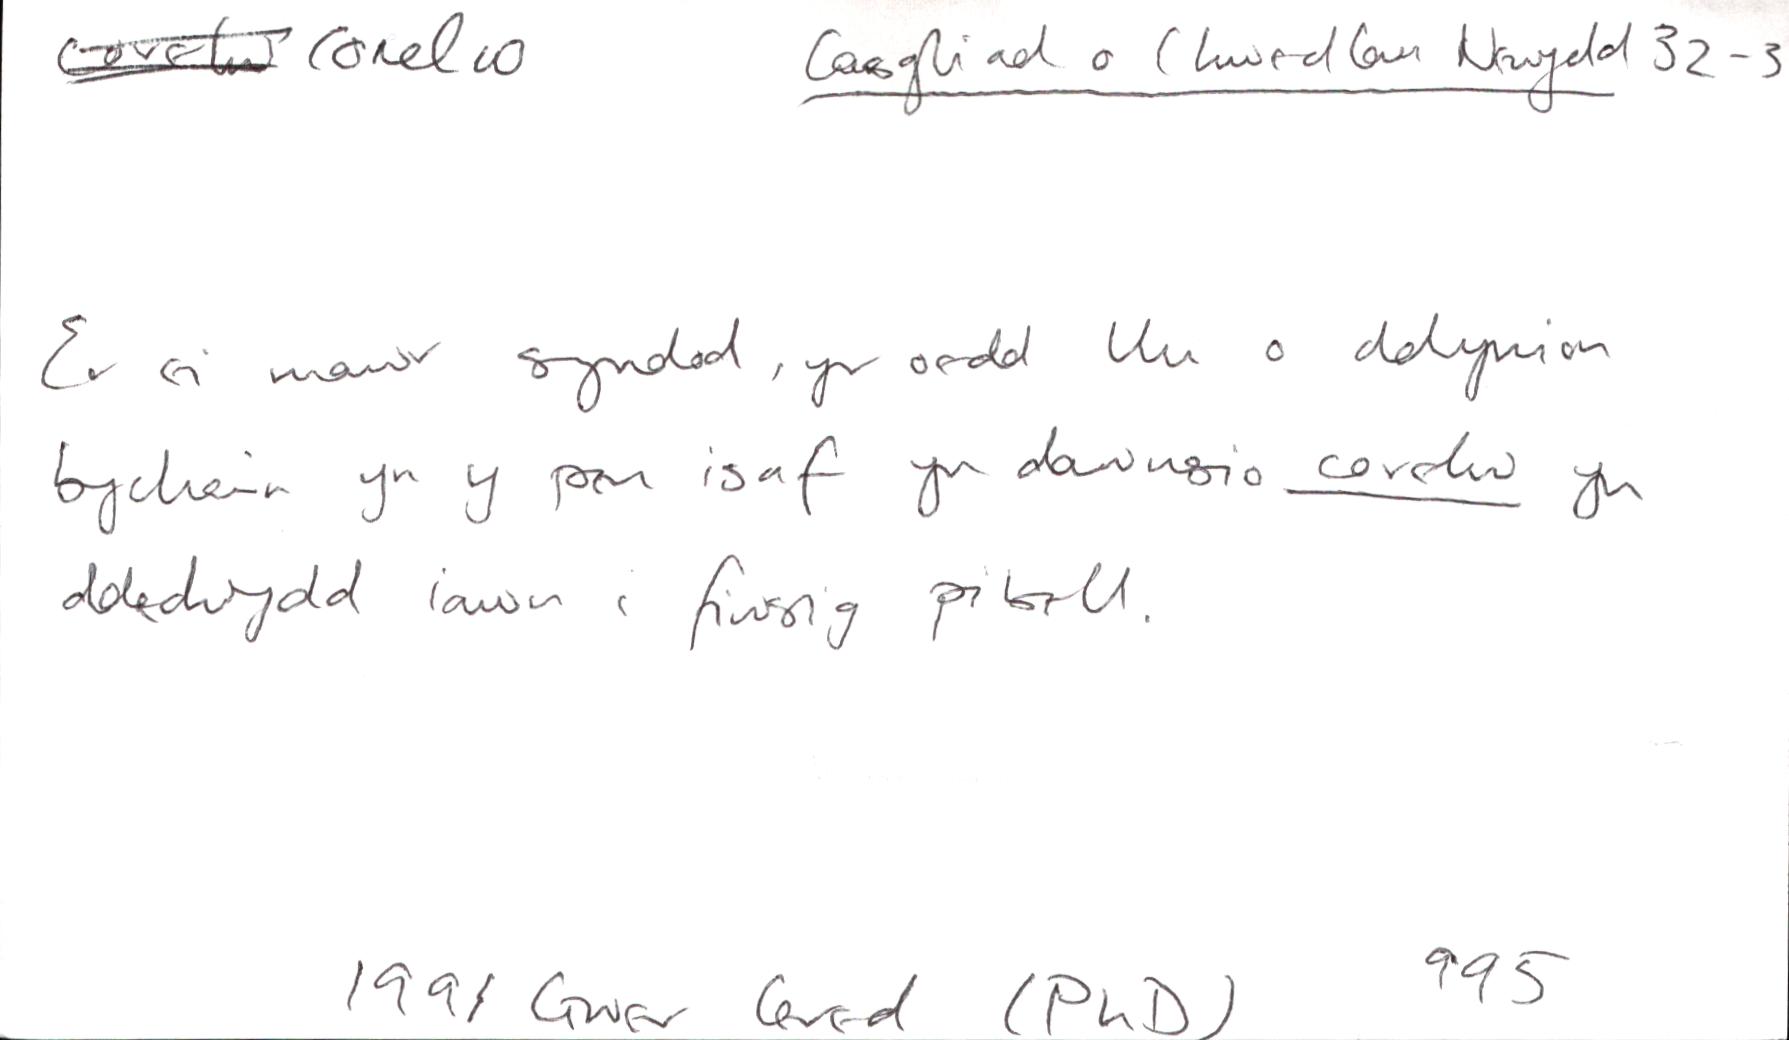 corelw corelw Casgliad o Chwedlau Newydd 32-3
Er ei mawr syndod, yr oedd llu o ddynion
bychain yn y pen isaf yn dawnsio corelw yn
ddedwydd iawn i fiwsig pibell.
1991 Gwer Cered (PhD) 995